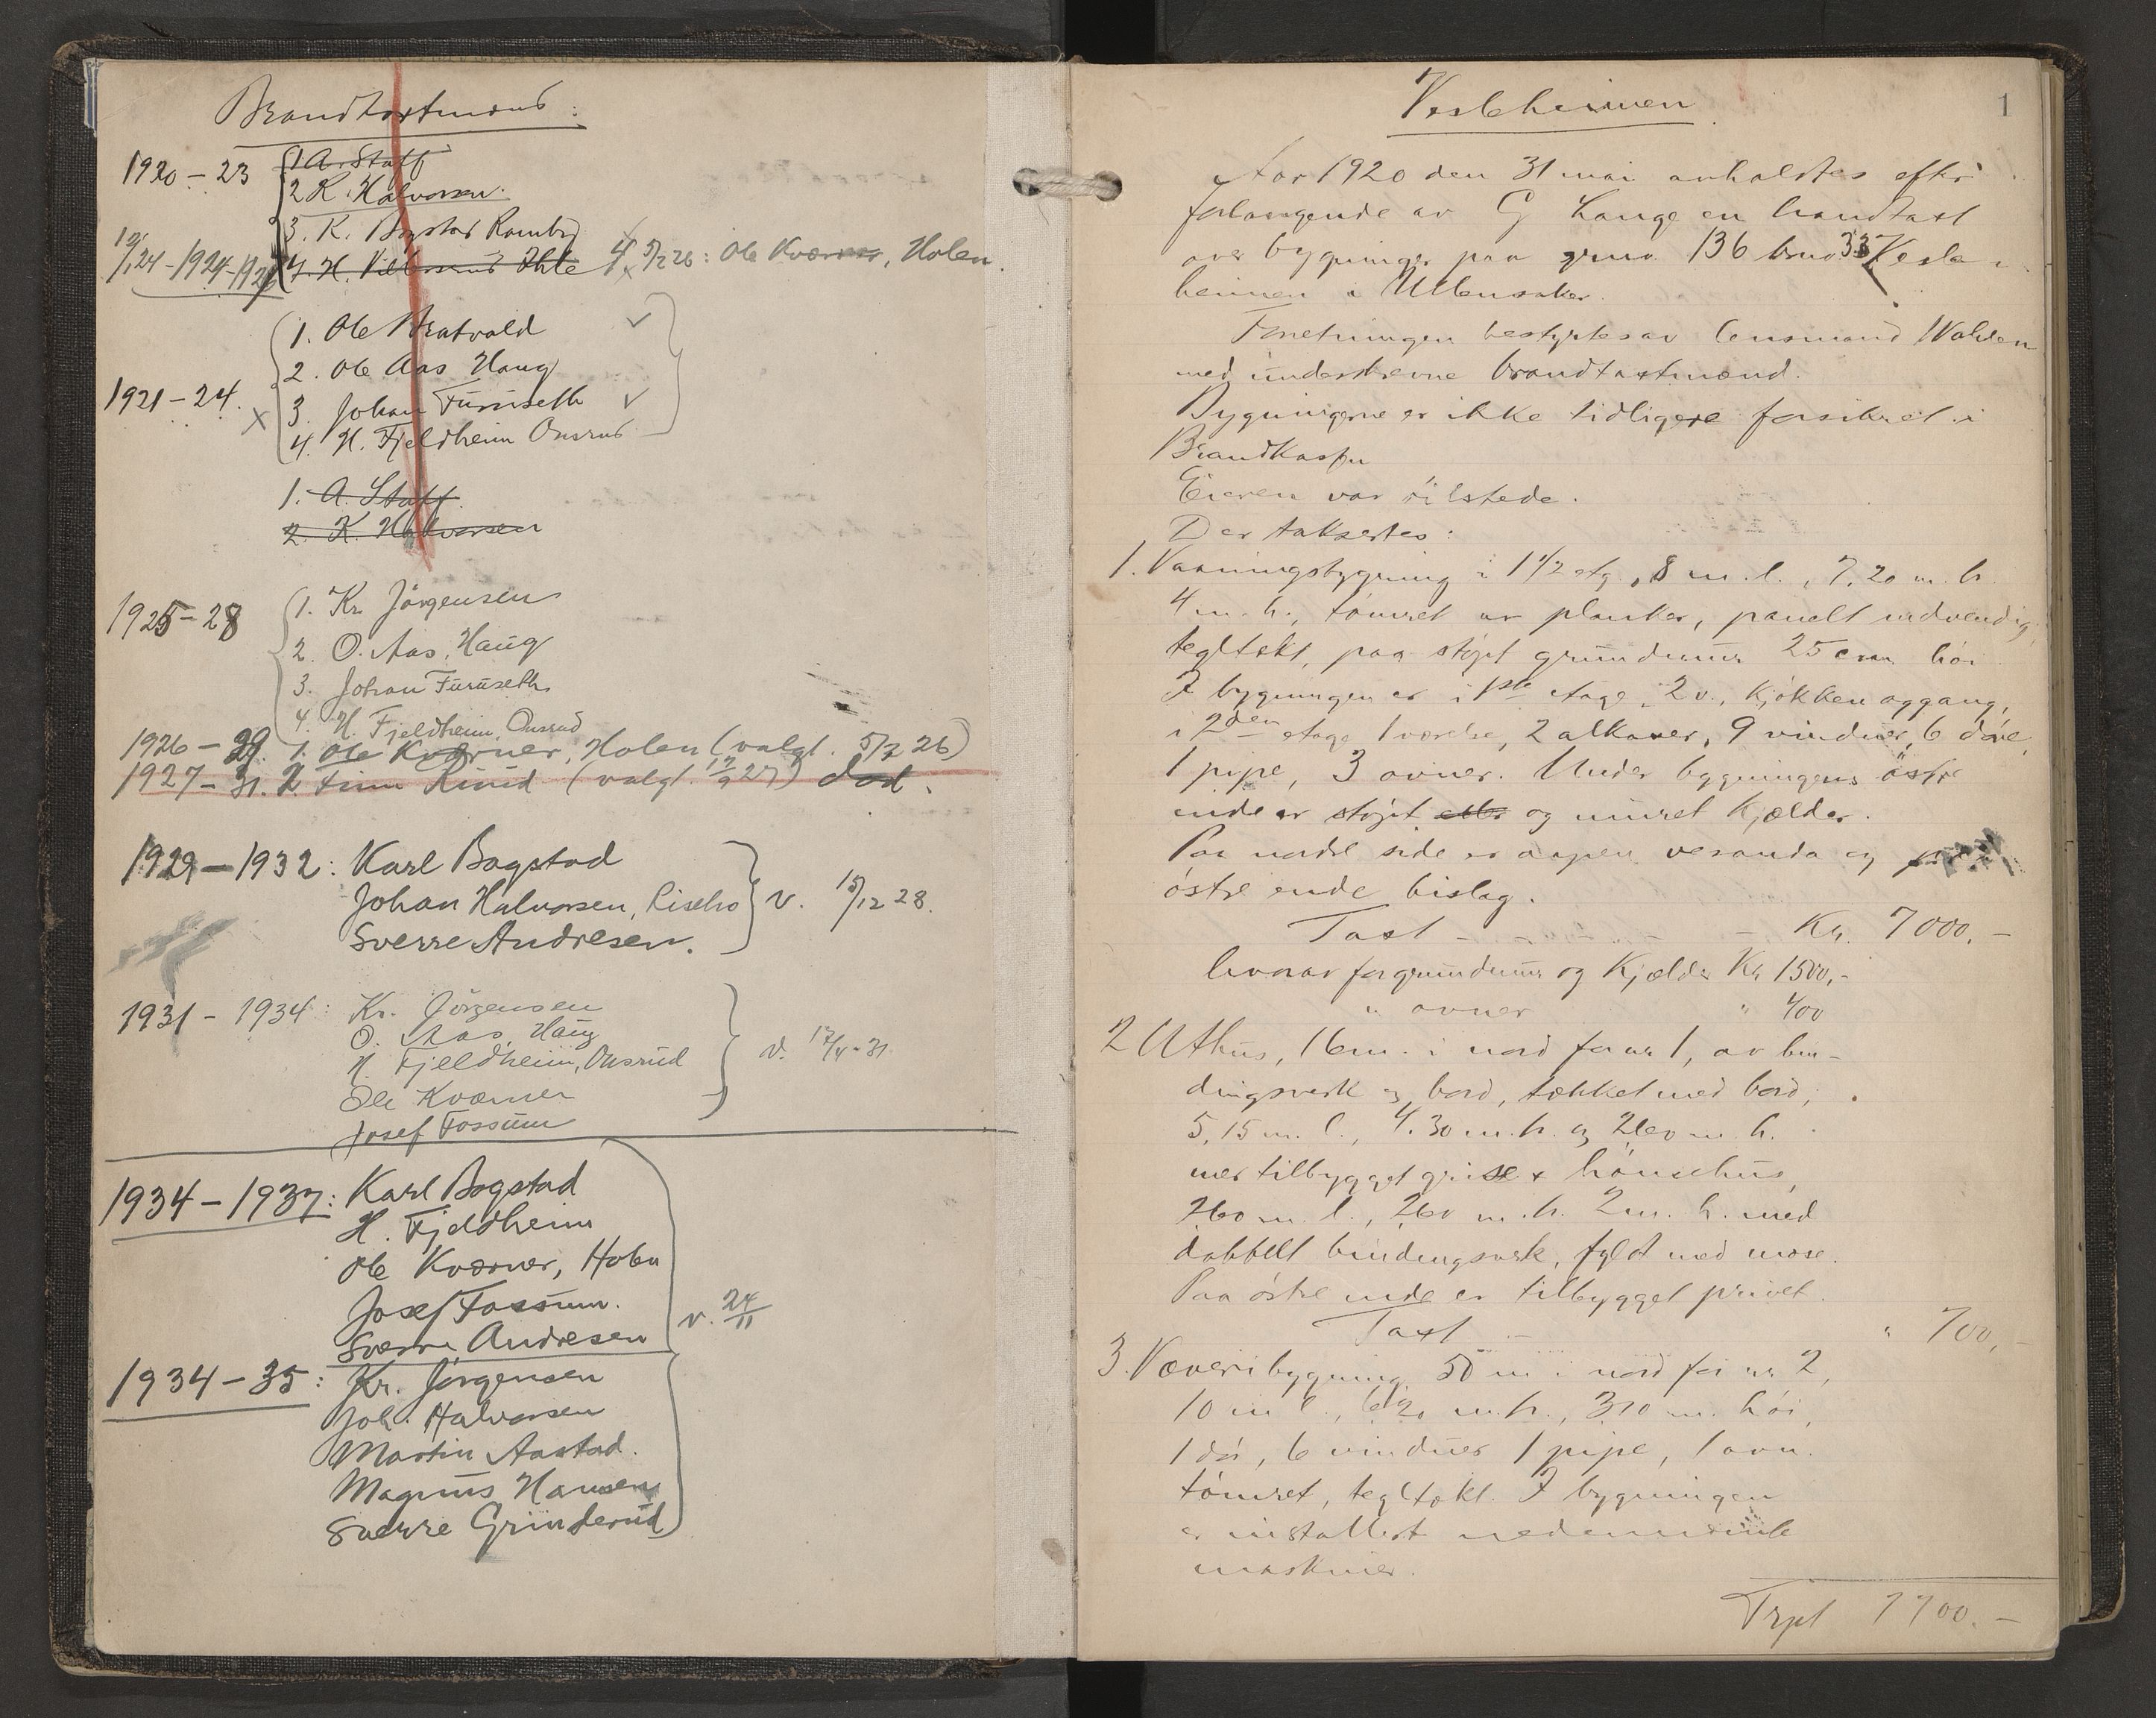 Brandtaxtmænd:
1920-23 1 A. Staff
2 K. Halvorsen.
3. K. Bogstad Romby
1924-192 4. H. Ihle 4 5/7 26: Ole Kværner, Holen.
1. Ole Bratvold
2. Ole Aas Haug
1921-24. 3 Johan Furuseth
4. H. Fjeldheim Onsrud
1. A. Staff
2. K. Halvorsen
1925-28 1. Kr. Jörgensen
2. O. Aas, Haug
3. Johan Furuseth
4. H. Fjeldheim, Onsrud
1926-29. 1. Ole Kværner, Holen (valgt. 5/7 26)
1927-31. 2 Finn Ruud (valgt 17/9 27) död.
1929-1932: Karl Bogstad
Johan Halvorsen, Risebro v. 15/12 28.
Sverre Andresen.
1931-1934: Kr. Jörgensen
O. Aas, Haug
H. Fjeldheim, Onsrud v. 17/4-31
Ole Kværner
Josef Fossum
1934-1937: Karl Bogstad
H. Fjeldheim
Ole Kværner, Holen
Josef Fossum.
Sverre Andresen v. 24/11
1934-35: Kr. Jörgensen
Joh. Halvorsen
Martin Aastad.
Magnus Hansen
Sverre Grinderud
1
Vesleheimen
Aar 1920 den 31 mai avholdtes efter
forlangende av G Lange en brandtaxt
over bygninger paa gnr. 136 bno 33 Vesle-
heimen i Ullensaker.
Forretningen bestyrtes av lensmand Wahlen
med underskrevne brandtaxtmænd.
Bygningerne er ikke tidligere forsikret i
Brandkassen
Eieren var tilstede.
Der taksertes:
1. Vaaningsbygning i 1 1/2 etg., 8 m. l., 7,20 m. b.
4 m. h., tömret av planker, panelt indvendig,
tegltekt, paa stöpt grundmur 25 cm höi
I bygningen er i 1ste etage 2 v., kjökken og gang,
i 2den etage 1 værelse, 2 alkover, 9 vinduer, 6 döre,
1 pipe, 3 ovner. Under bygningens östre
ende er stöpt eller og muret kjælder.
Paa nordre side er aapen veranda og
östre ende bislag.
Taxt - - - Kr. 7000.-
hvorav for grundmur og kjælder Kr 1500,-
" ovner " 400
2 Uthus, 16 m. i nord for nr 1, av bin-
dingsverk og bord, tækket med bord,
5,15 m. l., 4.30 m. b. og 260 m. h.
mer tilbygget grise & hönsehus,
260 m. l., 260 m. b. 2 m. h. med
dobbelt bindingsverk, fyldt med mose.
Paa östre ende er tilbygget privet.
Taxt - " 700,-
3. Væveribygning 50 m i nord for nr 2,
10 m l., 620 m. b., 310 m. höi,
1 dör, 6 vinduer 1 pipe, 1 ovn.
tömret, tegltekt. I bygningen
er installert nedennævnte
maskiner.
Trpt 7700.-